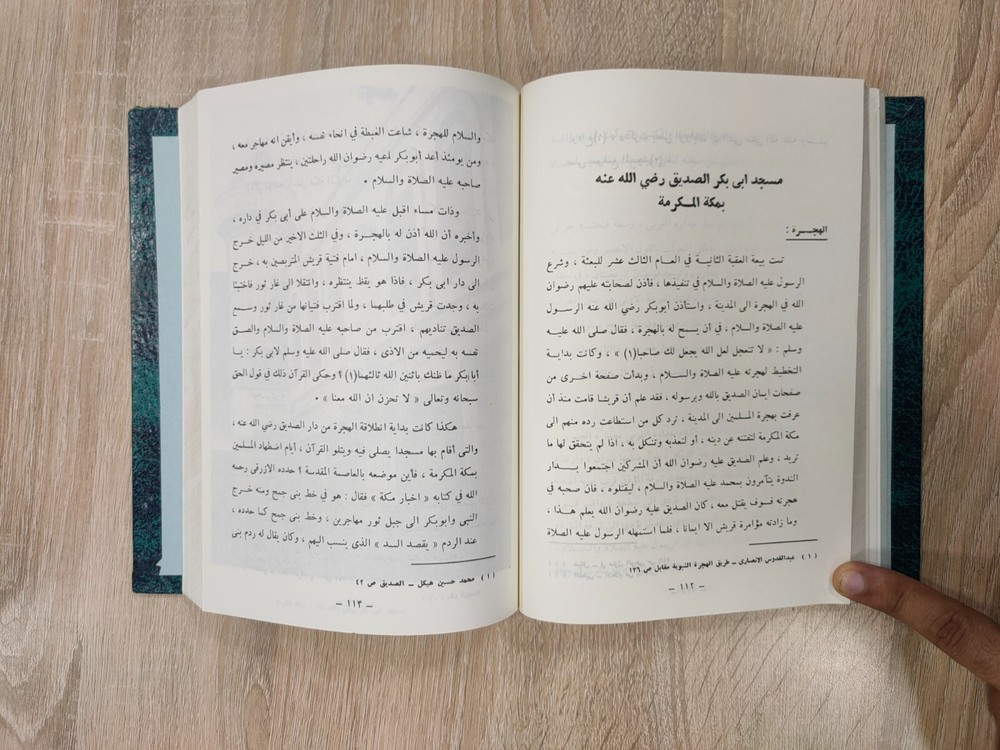 مسجد ابى بكر الصديق رضي الله عنه
بمكة المكرمة
الهجـــرة :
تمت بيعة العقبة الثانية في العام الثالث عشر للبعثة ، وشرع
الرسول عليه الصلاة والسلام في تنفيذها ، فأذن لصحابته عليهم رضوان
الله في الهجرة الى المدينة ، واستأذن أبوبكر رضي الله عنه الرسول
عليه الصلاة والسلام ، في أن يسمح له بالهجرة ، فقال صلى الله عليه
وسلم : « لا تتعجل لعل الله يجعل لك صاحبا(١) » ، وكانت بداية
التخطيط لهجرته عليه الصلاة والسلام ، وبدأت صفحة اخرى من
صفحات ايمان الصديق بالله وبرسوله ، فقد علم أن قريشا قامت منذ أن
عرفت بهجرة المسلمين الى المدينة ، ترد كل من استطاعت رده منهم الى
مكة المكرمة لتفتنه عن دينه ، أو لتعذبه وتنكل به ، اذا لم يتحقق لها ما
تريد ، وعلم الصديق عليه رضوان الله أن المشركين اجتمعوا بــدار
الندوة يتآمرون بمحمد عليه الصلاة والسلام ، ليقتلوه ، فان صحبه في
هجرته فسوف يقتل معه ، كان الصديق عليه رضوان الله يعلم هذا ،
وما زادته مؤامرة قريش الا ايمانا ، فلما استمهله الرسول عليه الصلاة
(١) عبدالقدوس الانصارى – طريق الهجرة النبوية مقابل ص ١٣٦
– ١١٢ –
والسلام للهجرة ، شاعت الغبطة في انحاء نفسه ، وأيقن انه مهاجر معه ،
ومن يومئذ أعد أبوبكر لمعيه رضوان الله راحلتين ، ينتظر مصيره ومصير
صاحبه عليه الصلاة والسلام .
وذات مساء اقبل عليه الصلاة والسلام على أبى بكر في داره ،
وأخبره أن الله أذن له بالهجرة ، وفي الثلث الاخير من الليل خرج
الرسول عليه الصلاة والسلام ، امام فتية قريش المتربصين به ، خرج
الى دار ابى بكر ، فاذا هو يقظ ينتظره ، وانتقلا الى غار ثور فاختبئا
به ، وجدت قريش في طلبهما ، ولما اقترب فتيانها من غار ثور وسمع
الصديق تناديهم ، اقترب من صاحبه عليه الصلاة والسلام والصق
نفسه به ليحميه من الاذى ، فقال صلى الله عليه وسلم لابى بكر : يــا
أبابكر ما ظنك باثنين الله ثالثهما(١) ؟ وحكى القرآن ذلك في قول الحق
سبحانه وتعالى « لا تحزن ان الله معنا » .
هكذا كانت بداية انطلاقة الهجرة من دار الصديق رضي الله عنه ،
والتى أقام بها مسجدا يصلى فيه ويتلو القرآن ، أيام اضطهاد المسلمين
بمكة المكرمة ، فأين موضعه بالعاصمة المقدسة ؟ حدده الازرقى رحمه
الله في كتابه « اخبار مكة » فقال : هو في خط بنى جمح ومنه خرج
النبى وابوبكر الى جبل ثور مهاجرين ، وخط بنى جمح كما حدده ،
عند الردم « يقصد السد » الذى ينسب اليهم ، وكان يقال له ردم بنى
(١) محمد حسين هيكل – الصديق ص ٤٢
– ١١٣ –